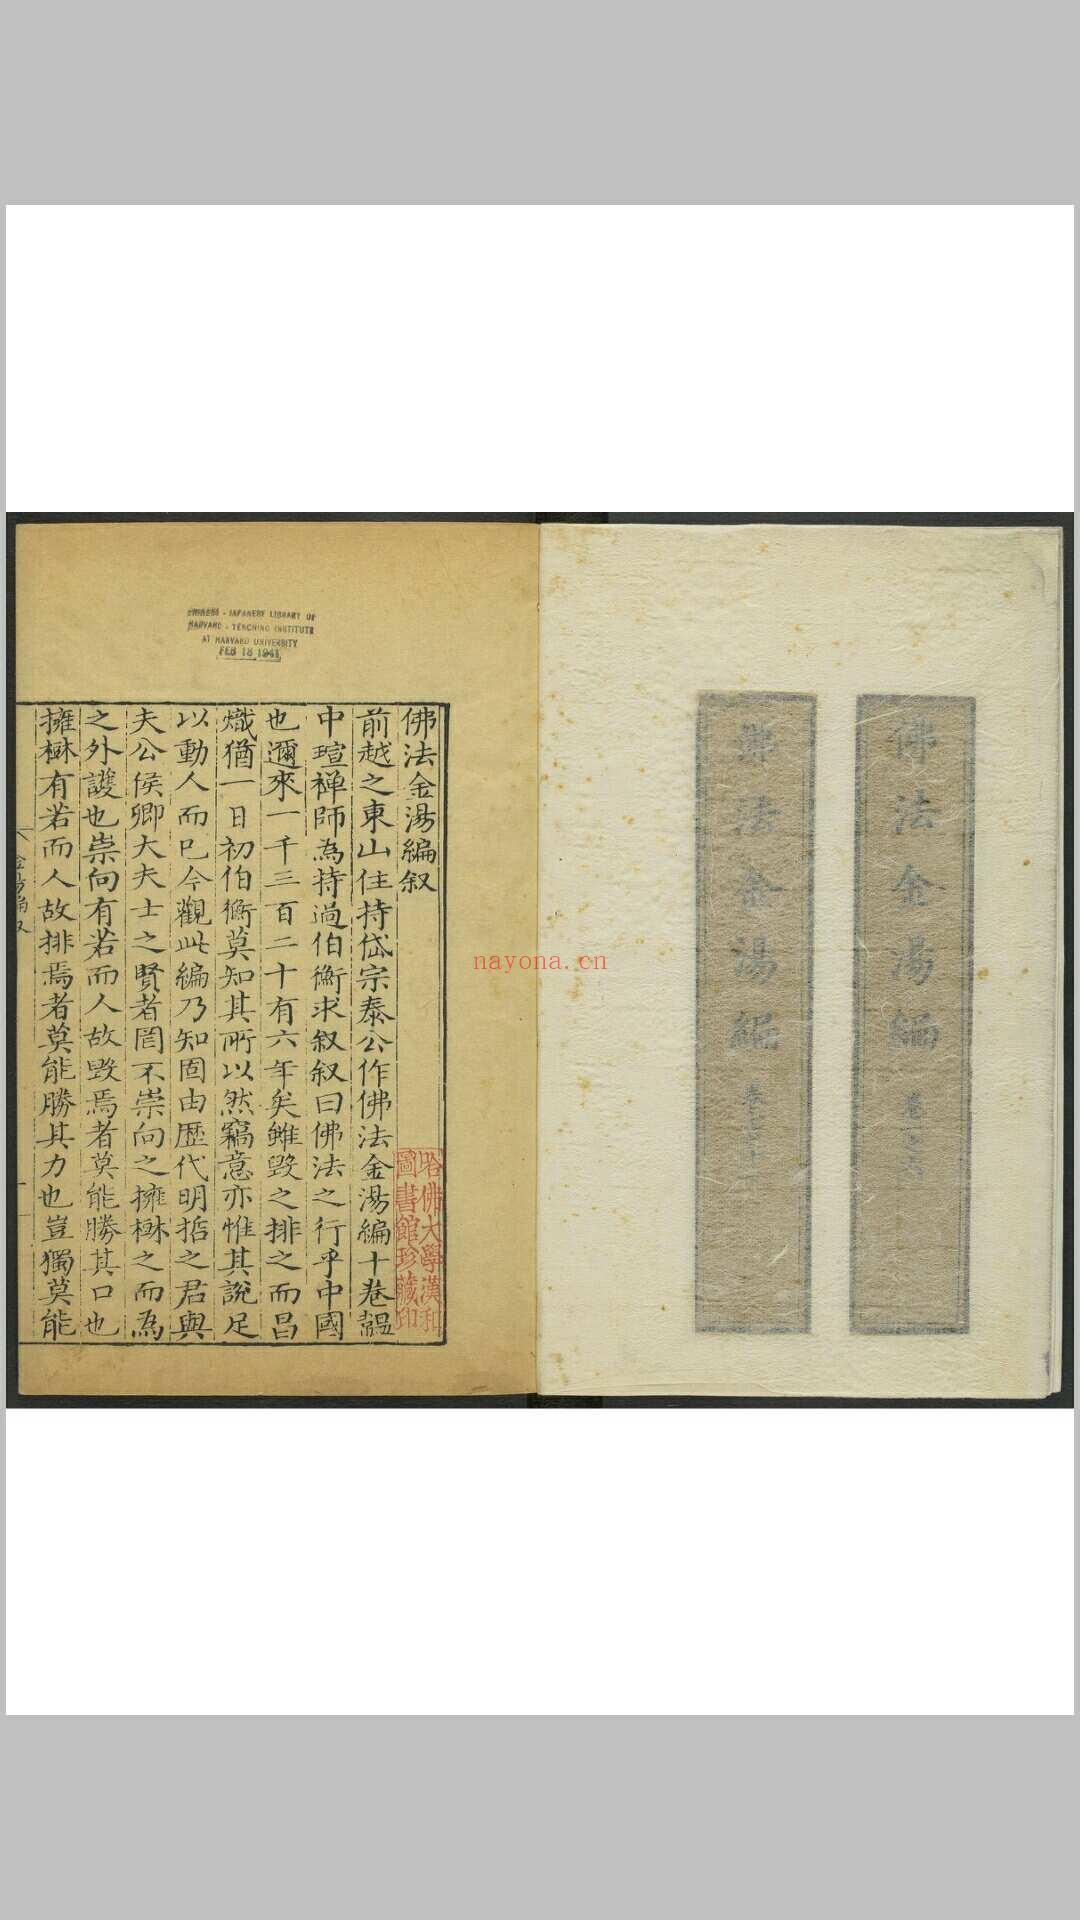 佛法金湯編
佛法金湯編
CHINESE - JAPANESE LIBRARY OF
HARVARD - YENCHING INSTITUTE
AT HARVARD UNIVERSITY
FEB 18 1941
佛法金湯編叙
前越之東山住持岱宗泰公作佛法金湯編十卷韞
中瑄禅師為持過伯衡求叙叙曰佛法之行乎中國
也邇來一千三百二十有六年矣雖毀之排之而昌
熾猶一日初伯衡莫知其所以然竊意亦惟其說足
以動人而已今觀此編乃知固由歷代明哲之君與
夫公侯卿大夫士之賢者罔不崇向之擁楙之而為
之外護也崇向有若而人故毀焉者莫能勝其口也
擁楙有若而人故排焉者莫能勝其力也豈獨莫能
哈佛大學漢和
圖書館珍藏印
nayona.cn